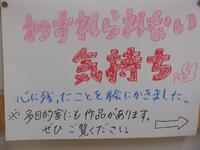 わすれられない
気持ち
心に残ったことを絵にかきました。
※多目的室にも作品があります。
ぜひご覧ください。